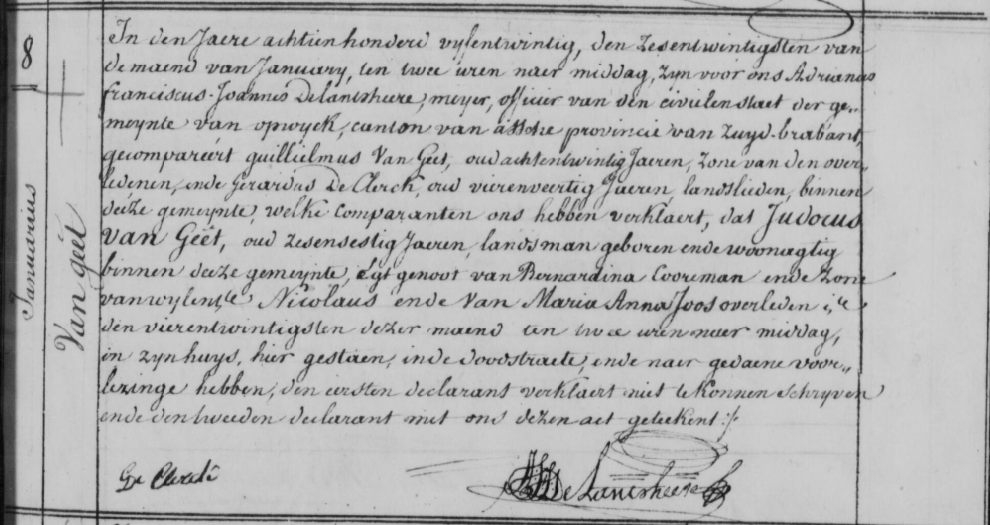 8
Januarius
Van geét
In den Jaere achtien honderd vyfentwintig, den zesentwintigsten van
de maend van January, ten twee uren naer middag, zyn voor ons Adrianus
franciscus-Joannes De Lantsheere, meyer, officier van den civilen staet der ge„
meynte van opwyck, canton van assche provincie van Zuyd-brabant,
gecompareért guillielmus Van Geét, oud achtentwintig Jaeren, Zone van den over„
ledenen, ende Gerardus De Clerck, oud vierenveertig Jaeren, landslieden, binnen
deéze gemeynte, welke Comparanten ons hebben verklaert, dat Judocus
Van Geét, oud zesensestig Jaeren, landsman geboren ende woonagtig
binnen deeze gemeynte, Egtgenoot van Bernardina Cooreman ende Zone
van wylen Nicolaus ende Van Maria Anna Joos overleden is
den vierentwintigsten dezer maend ten twee uren naer middag,
in zyn huys, hier gestaen, in de doodstraete, ende naer gedaene voor„
lezinge hebben, den eersten declarant verklaert niet te konnen schryven
ende den tweeden declarant met ons dezen act geteekent :/
De Clerck
De Lantsheere